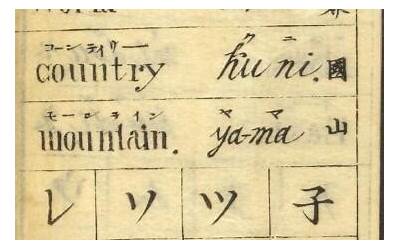 コーンテイリー ク ニ
country ku ni. 國
モーンテイン ヤ マ
mountain. ya-ma 山
レ ソ ツ 子